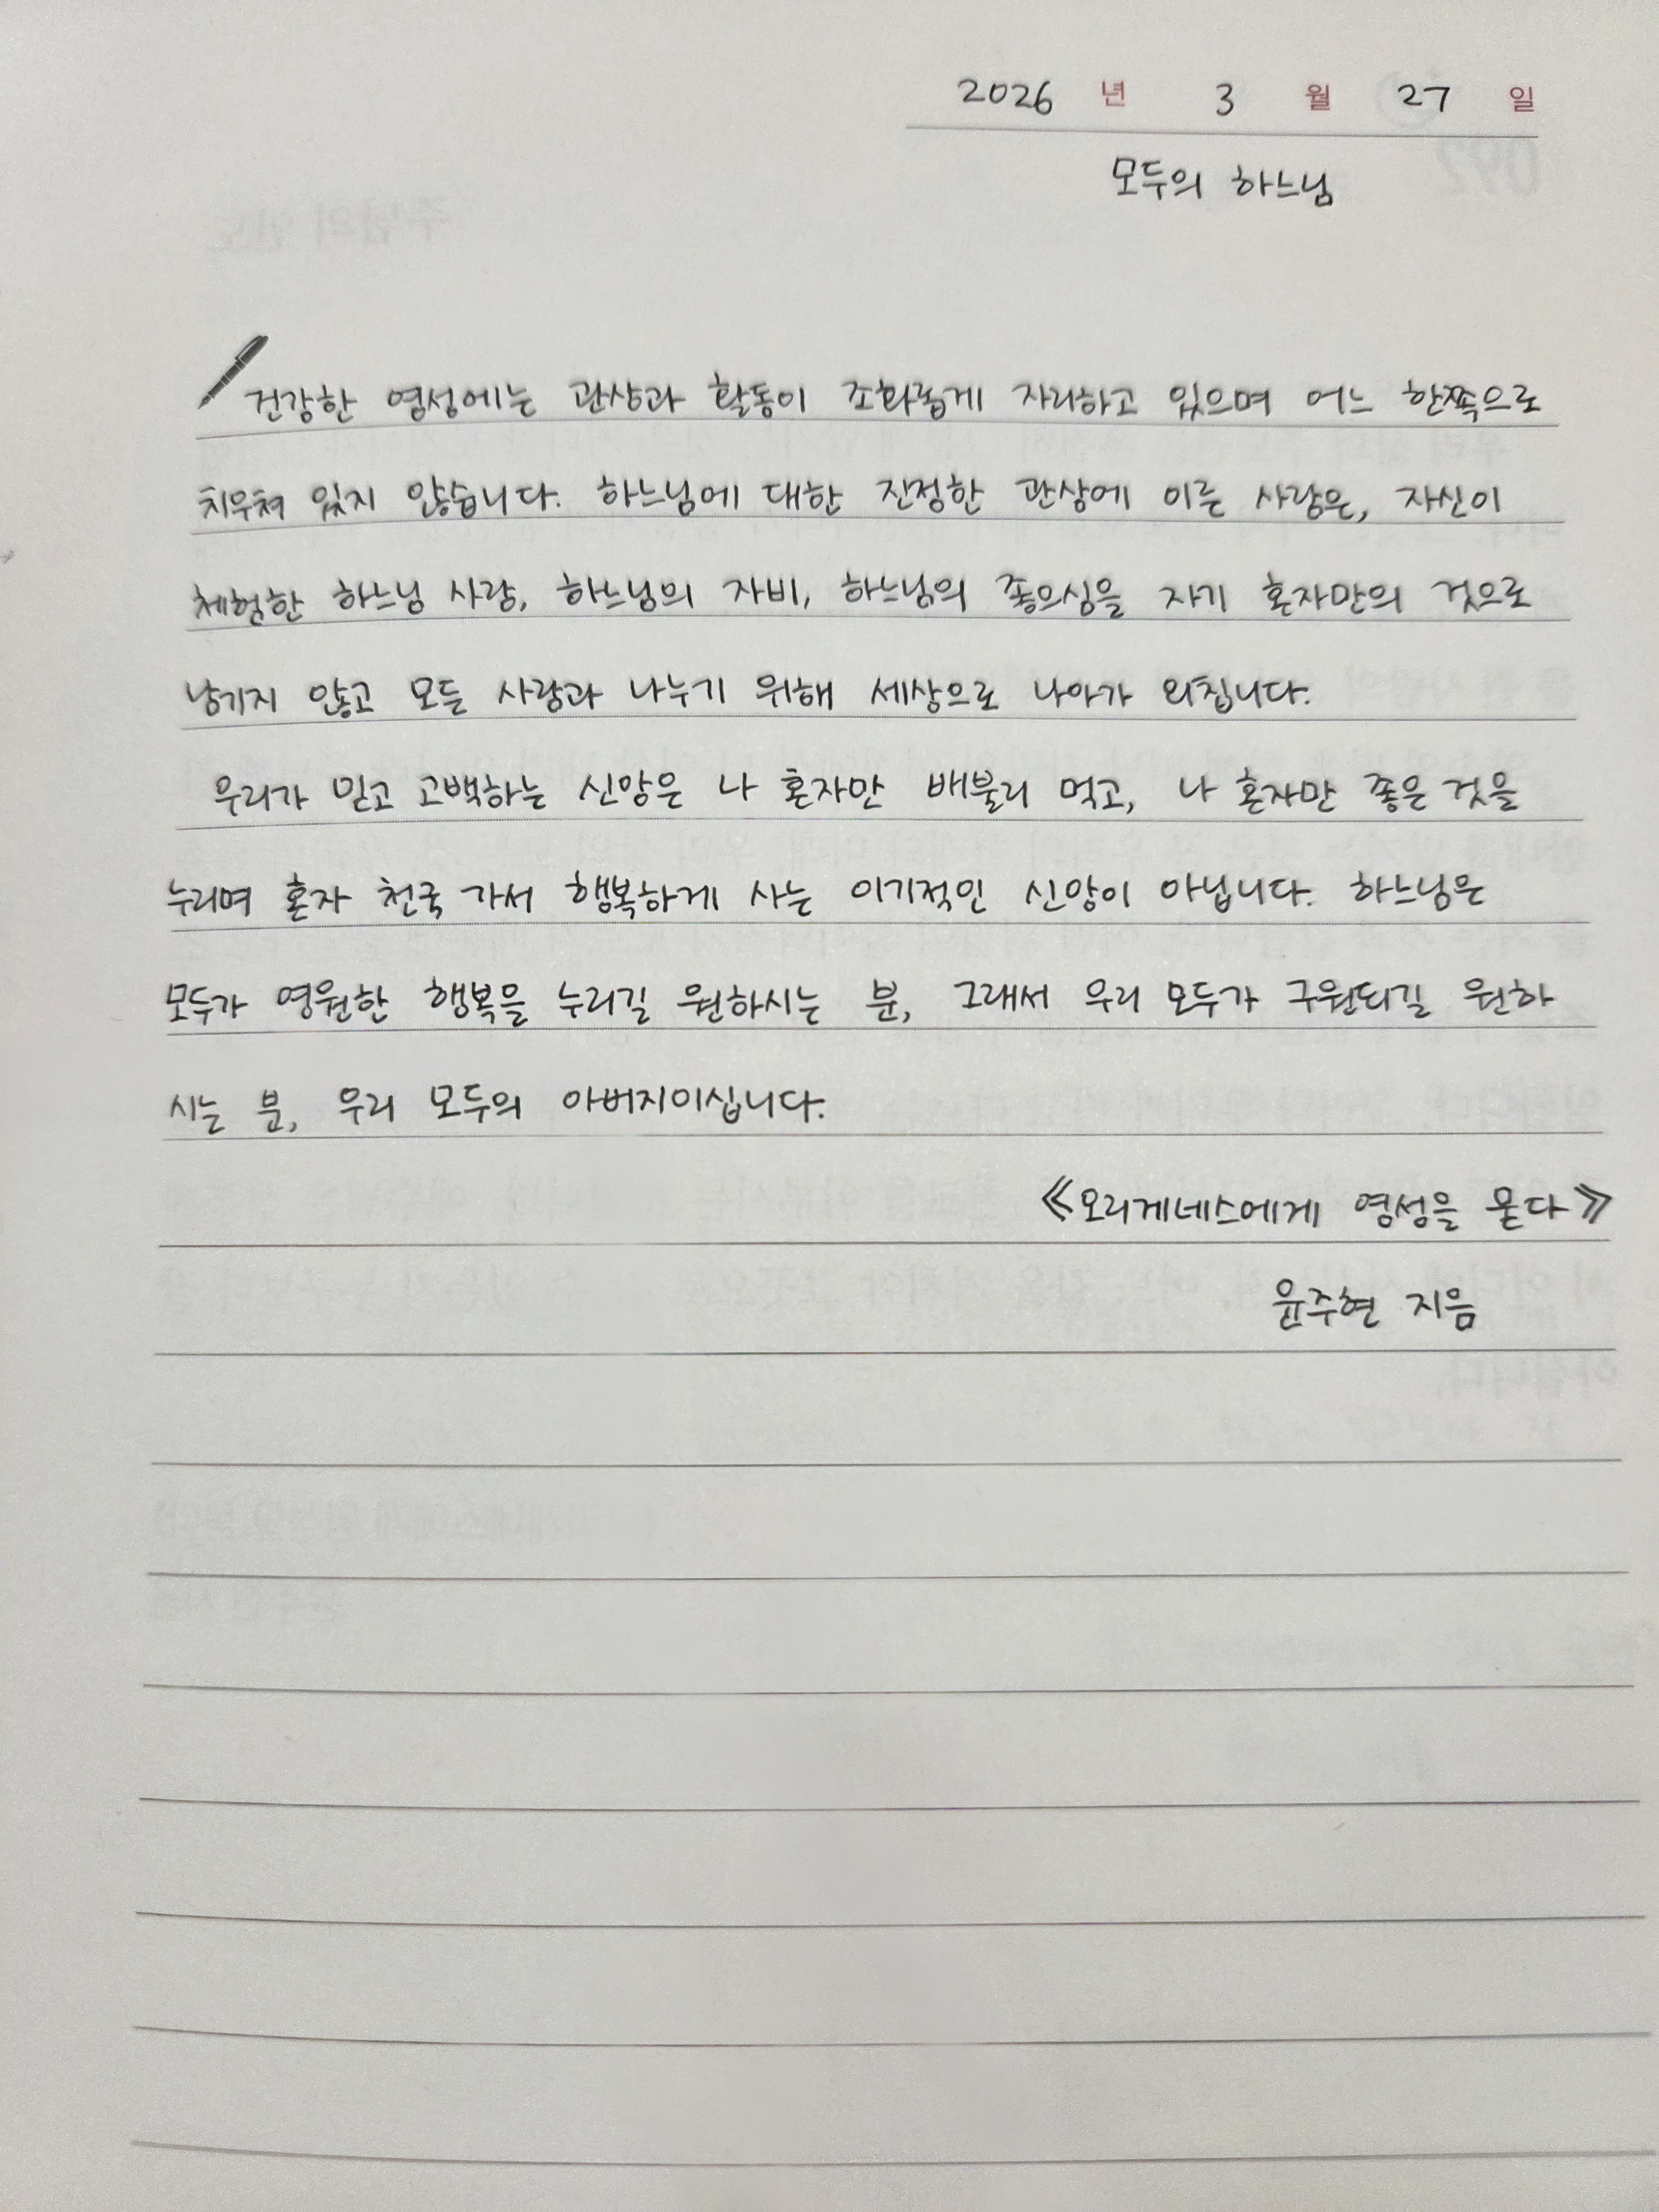 2026 년 3 월 27 일
모두의 하느님
건강한 영성에는 관상과 활동이 조화롭게 자리하고 있으며 어느 한쪽으로
치우쳐 있지 않습니다. 하느님에 대한 진정한 관상에 이른 사람은, 자신이
체험한 하느님 사랑, 하느님의 자비, 하느님의 좋으심을 자기 혼자만의 것으로
남기지 않고 모든 사람과 나누기 위해 세상으로 나아가 외칩니다.
우리가 믿고 고백하는 신앙은 나 혼자만 배불리 먹고, 나 혼자만 좋은 것을
누리며 혼자 천국 가서 행복하게 사는 이기적인 신앙이 아닙니다. 하느님은
모두가 영원한 행복을 누리길 원하시는 분, 그래서 우리 모두가 구원되길 원하
시는 분, 우리 모두의 아버지이십니다.
《오리게네스에게 영성을 묻다》
윤주현 지음